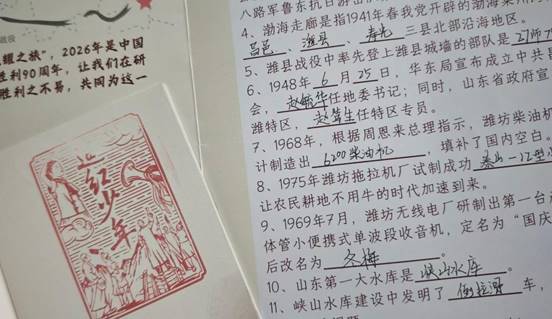 耀之旅"，2026年是中国
胜利90周年，让我们在研
胜利之不易，共同为这一
追红少年
八路军鲁东抗日游击
4、渤海走廊是指1941年春我党开辟的渤海
昌邑、潍县、寿光 三县北部沿海地区。
5、潍县战役中率先登上潍县城墙的部队是 27师79
6、1948年 6 月 25 日，华东局宣布成立中共昌
会， 任地委书记；同时，山东省政府宣
潍特区， 任特区专员。
7、1968年，根据周恩来总理指示，潍坊柴油机
计制造出 6200柴油机 ，填补了国内空白。
8、1975年潍坊拖拉机厂试制成功 泰山-12型小
让农民耕地不用牛的时代加速到来。
9、1969年7月，潍坊无线电厂研制出第一台
体管小便携式单波段收音机，定名为"国庆
后改名为 冬梅 。
10、山东第一大水库是 峡山水库 。
11、峡山水库建设中发明了 倒拉器 车，